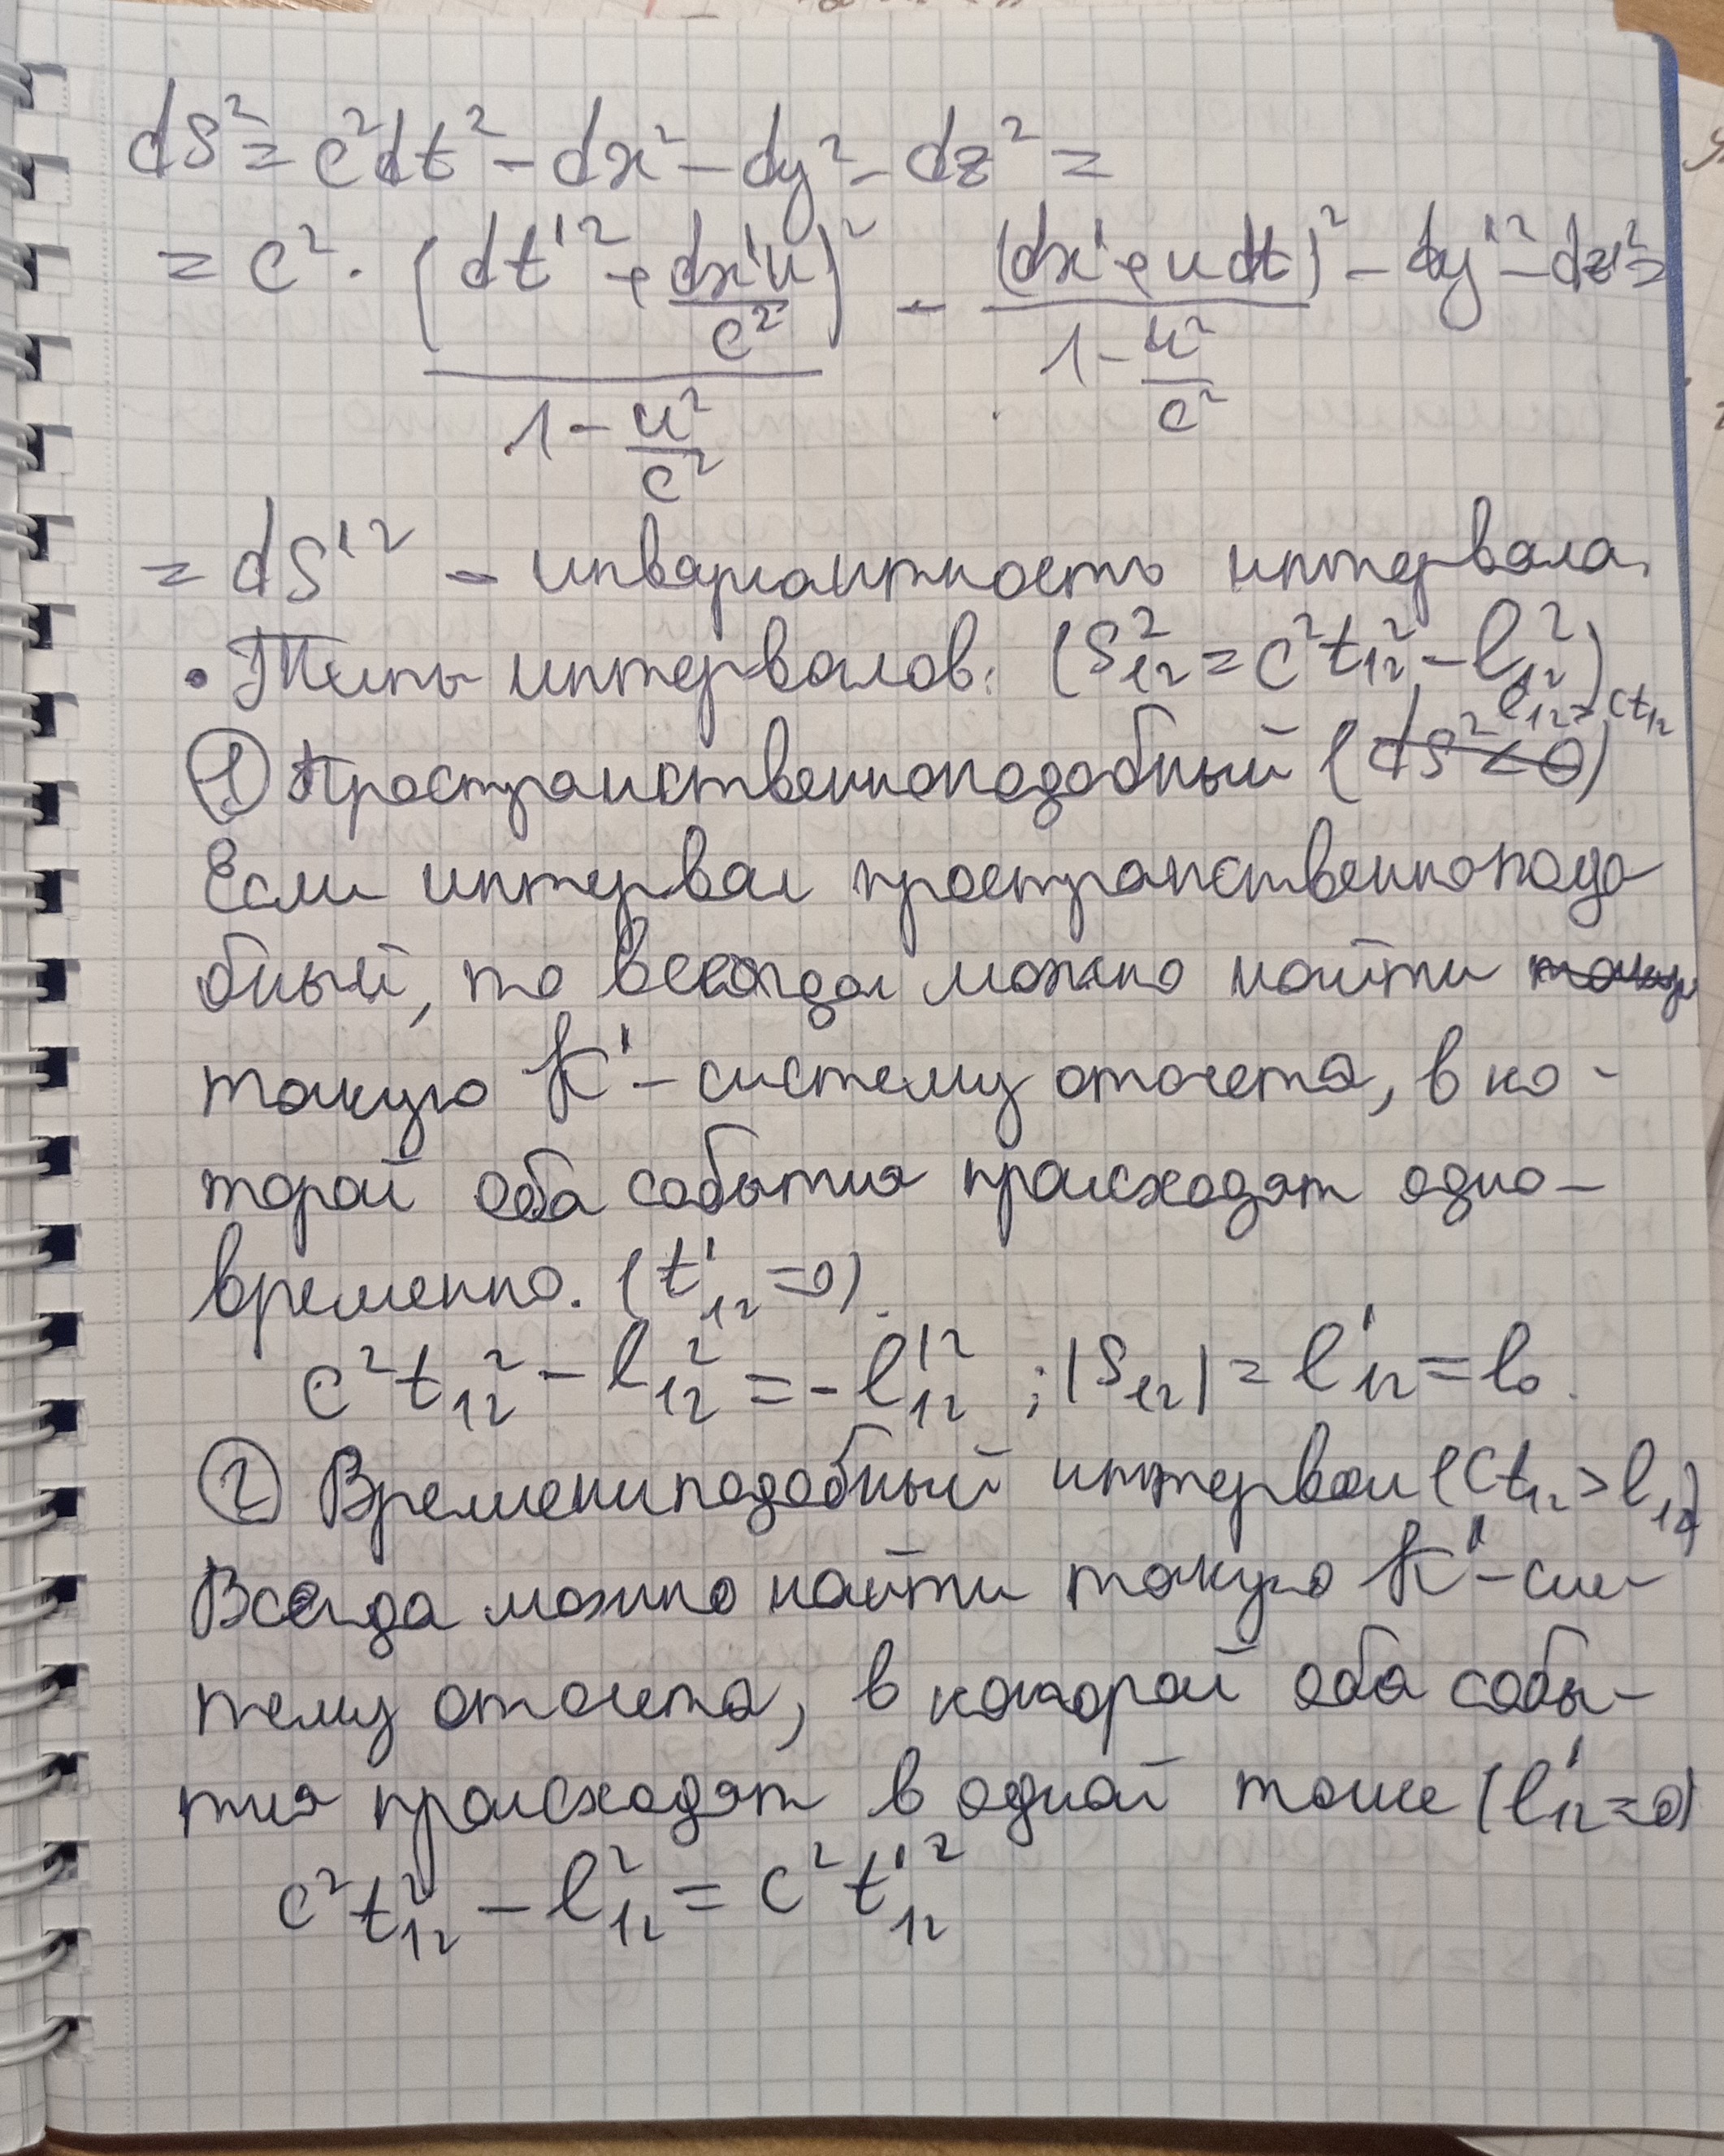 dS² = c²dt² - dx² - dy² - dz² =
= c² · (dt'² + dx'u/c²)² / (1 - u²/c²) - (dx' + u dt)² / (1 - u²/c²) - dy'² - dz'² =
= dS'² - инвариантность интервала.
• Типы интервалов: (S₁₂² = c²t₁₂² - l₁₂²)
① Пространственноподобный (dS² < 0)
Если интервал пространственноподо
бный, то всегда можно найти
такую K' - систему отсчета, в ко-
торой оба события происходят одно-
временно. (t'₁₂ = 0).
c²t₁₂² - l₁₂² = - l'₁₂² ; |S₁₂| = l'₁₂ = l₀.
② Времениподобный интервал (ct₁₂ > l₁₂)
Всегда можно найти такую K' - сис
тему отсчета, в которой оба собы-
тия происходят в одной точке (l'₁₂ = 0)
c²t₁₂² - l₁₂² = c²t'₁₂²